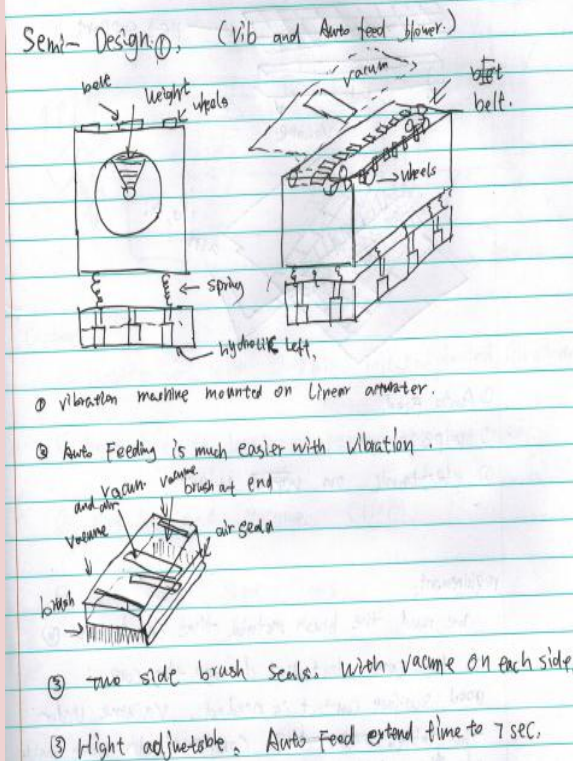 Semi-Design ①, (Vib and Auto feed blower.)
belt weight wheels
vacum
belt.
wheels
spring
hydrolik left.
① vibration machine mounted on Linear actuater.
② Auto Feeding is much easier with vibration.
vacum and air
vacume
brush at end
vacume
air
brush
③ two side brush seals. With vacume on each side.
③ Hight adjustable. Auto Feed extend time to 7 sec.
requirement